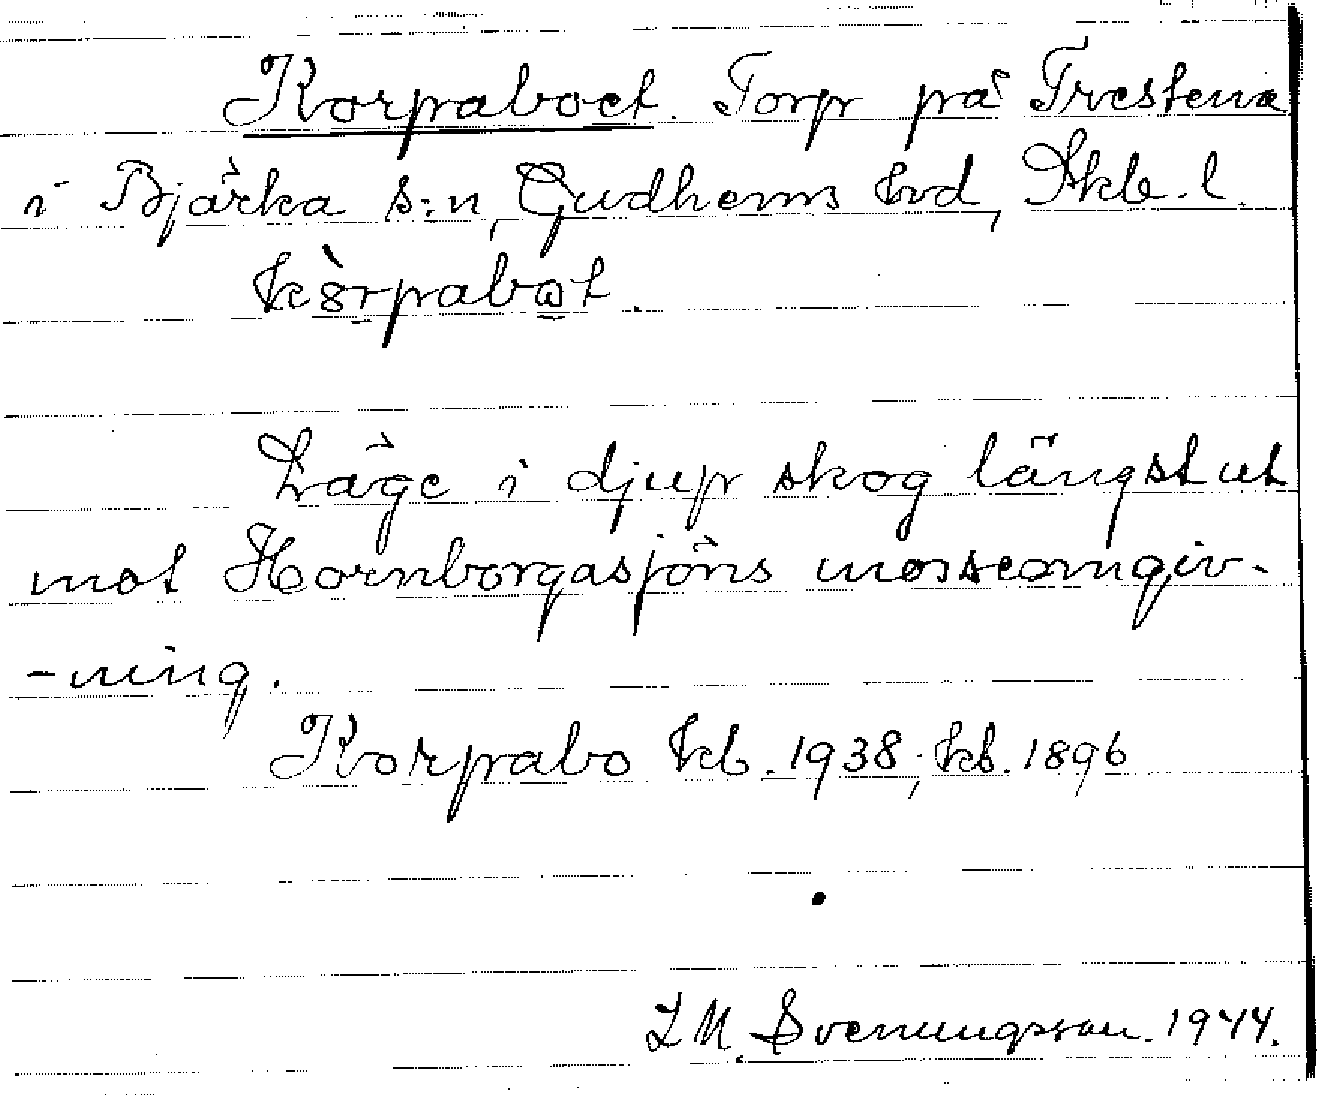 Korpaboet. Torp på Trestena
i Bjärka s:n, Gudhems hd, Skb. l.
kòrpabot.
Läge i djup skog längst ut
mot Hornborgasjöns mosseomgiv-
-ning.
Korpabo kb. 1938; kb. 1896
L M. Svenungsson. 1944.